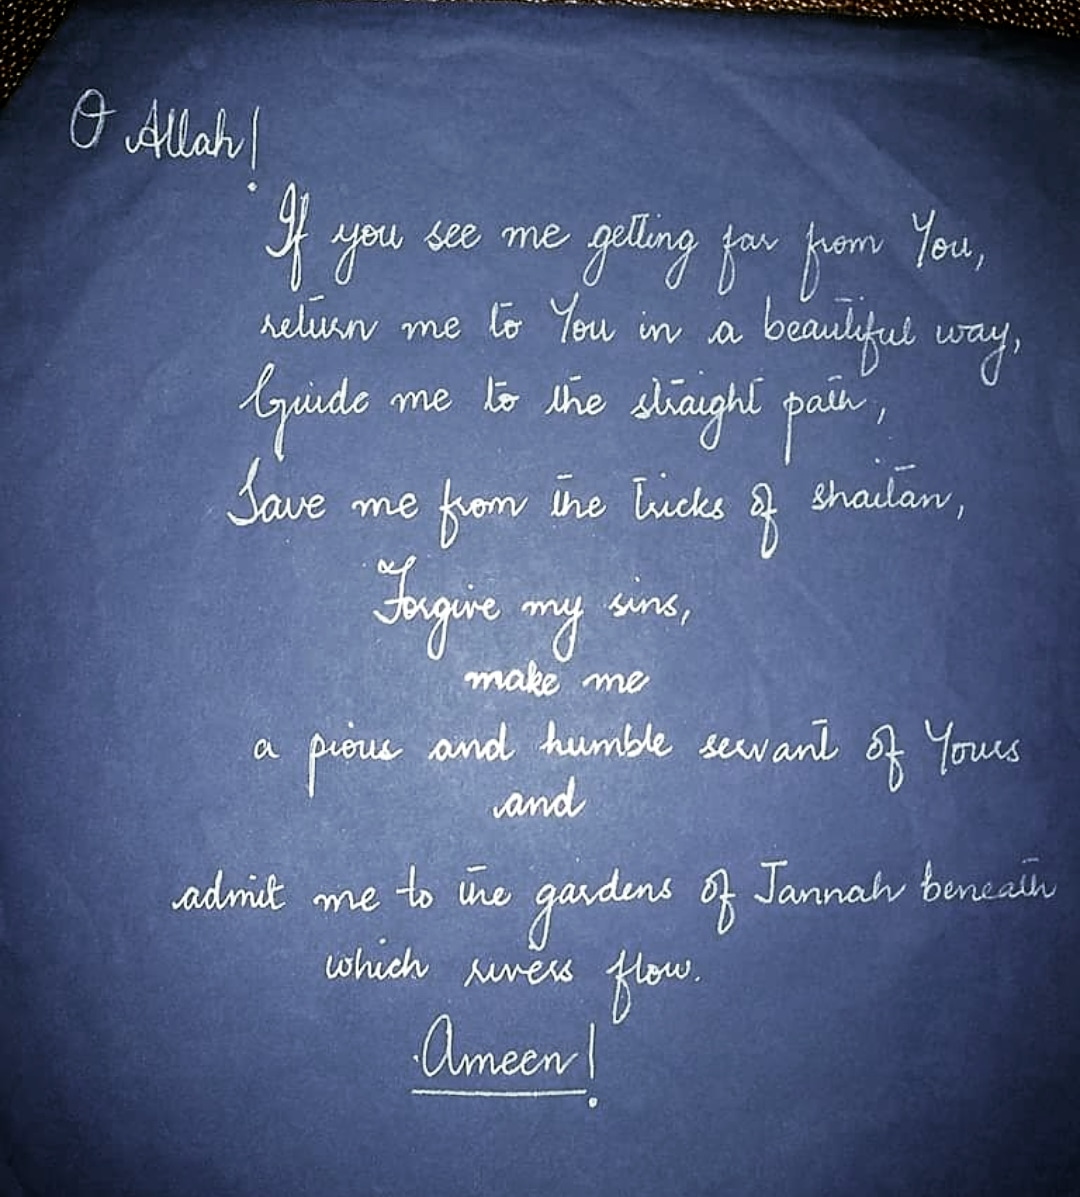 O Allah!
If you see me getting far from You,
return me to You in a beautiful way,
Guide me to the straight path,
Save me from the tricks of shaitan,
Forgive my sins,
make me
a pious and humble servant of Yours
and
admit me to the gardens of Jannah beneath
which rivers flow.
Ameen!